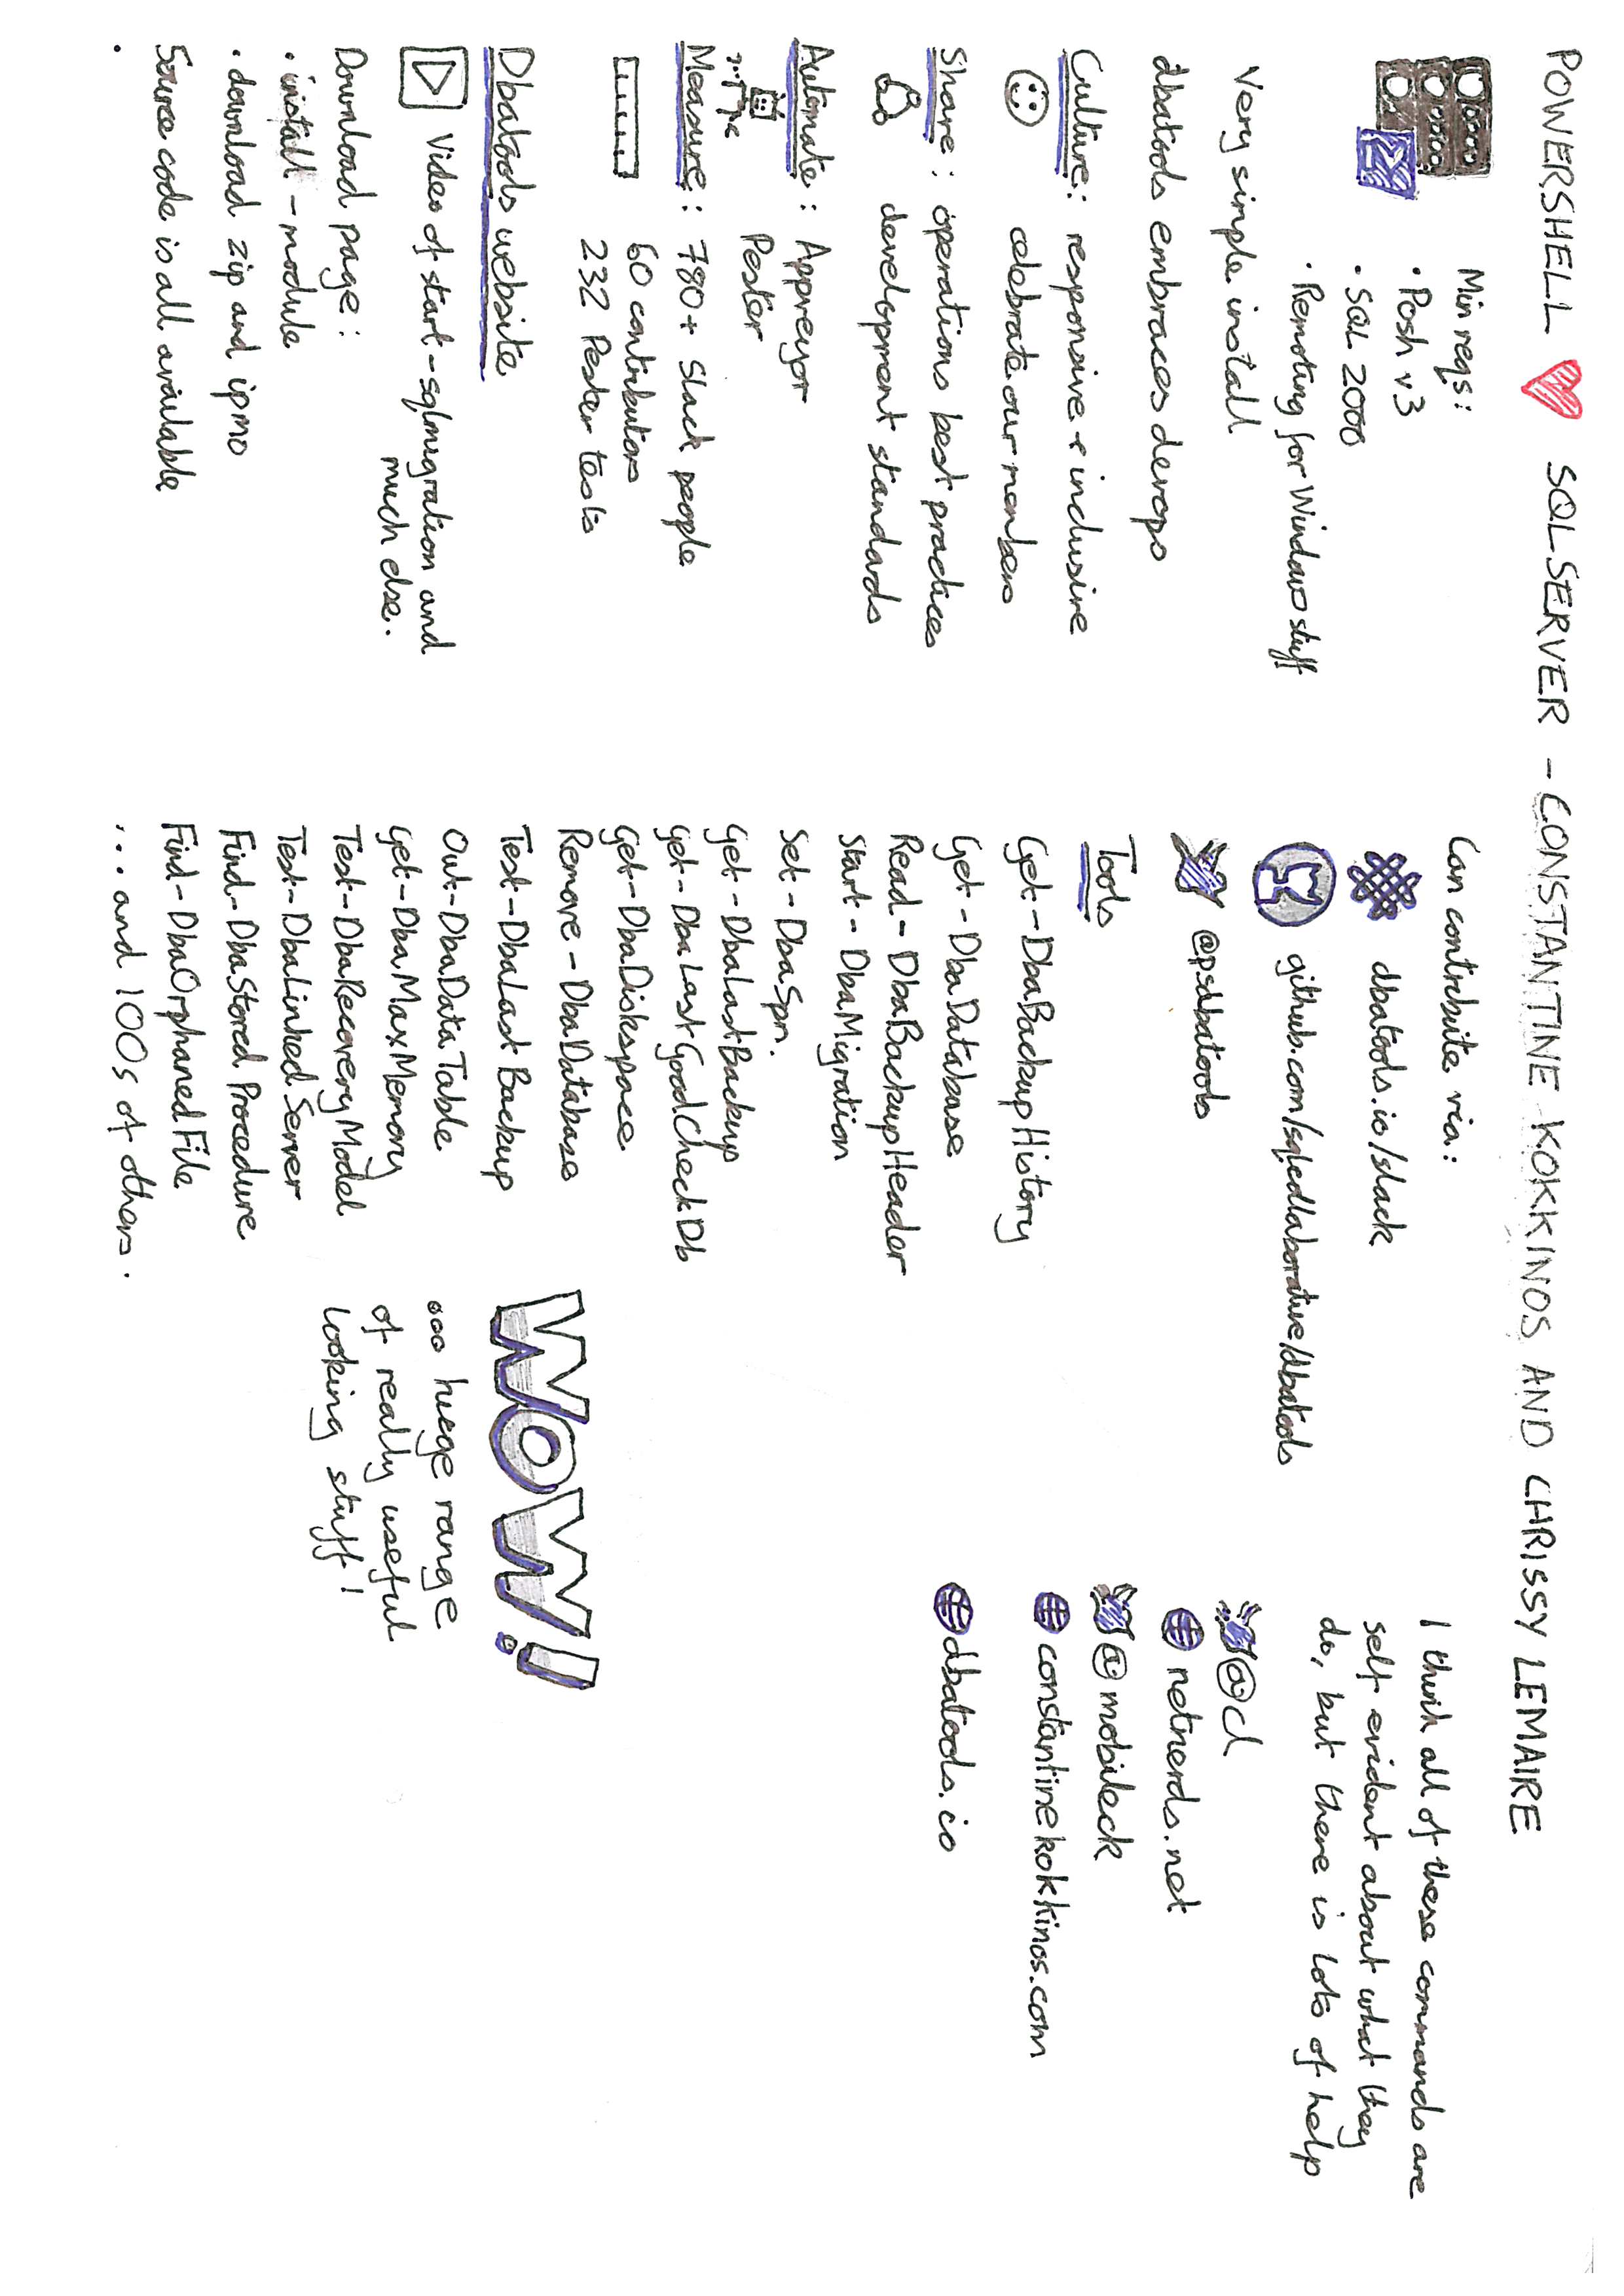 POWERSHELL ❤ SQLSERVER - CONSTANTINE KOKKINOS AND CHRISSY LEMAIRE
Min reqs:
• Posh v3
• SQL 2000
• Remoting for Windows stuff
Very simple install
dbatools embraces devops
Culture: responsive + inclusive
celebrate our members
Share: operations best practices
development standards
Automate: Appveyor
Pester
Measure: 780+ Slack people
60 contributors
232 Pester tests
Dbatools website
Video of start-sqlmigration and
much else.
Download page:
• install-module
• download zip and ipmo
Source code is all available
•
Can contribute via:
dbatools.io/slack
github.com/sqlcollaborative/dbatools
@psdbatools
Tools
Get-DbaBackupHistory
Get-DbaDatabase
Read-DbaBackupHeader
Start-DbaMigration
Set-DbaSpn.
Get-DbaLastBackup
Get-DbaLastGoodCheckDb
Get-DbaDiskspace
Remove-DbaDatabase
Test-DbaLastBackup
Out-DbaDataTable
Get-DbaMaxMemory
Test-DbaRecoveryModel
Test-DbaLinkedServer
Find-DbaStoredProcedure
Find-DbaOrphanedFile
... and 100s of others.
I think all of these commands are
self evident about what they
do, but there is lots of help
@cl
netnerds.net
@mobileck
constantinekokkinos.com
dbatools.io
WOW!
... huge range
of really useful
looking stuff!